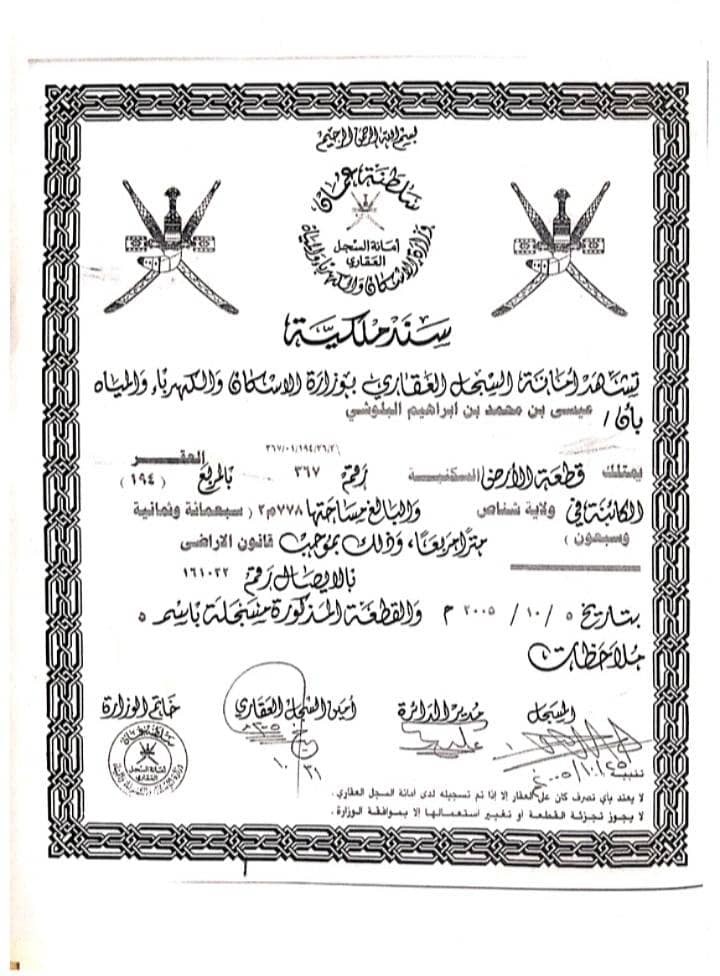 بسم الله الرحمن الرحيم
سلطنة عمان
وزارة الاسكان والكهرباء والمياه
أمانة السجل
العقاري
سند ملكية
تشهد أمانة السجل العقاري بوزارة الاسكان والكهرباء والمياه
بأن / عيسى بن محمد بن ابراهيم البلوشي
يمتلك قطعة الأرض السكنية رقم ٣٦٧ بالمربع العقر ( ١٩٤ )
الكائنة في ولاية شناص والبالغ مساحتها ٧٧٨م٢ ( سبعمائة وثمانية
وسبعون ) مترا مربعا، وذلك بموجب قانون الاراضي
بالايصال رقم ١٦١٠٢٢
بتاريخ ٥ / ١٠ / ٢٠٠٥ م والقطعة المذكورة مسجلة باسمه
ملاحظات :
المسجل مدير الدائرة أمين السجل العقاري خاتم الوزارة
أمانة السجل
العقاري
تنبيه
لا يعتد بأي تصرف كان على العقار إلا إذا تم تسجيله لدى امانة السجل العقاري .
لا يجوز تجزئة القطعة أو تغيير استعمالها إلا بموافقة الوزارة .